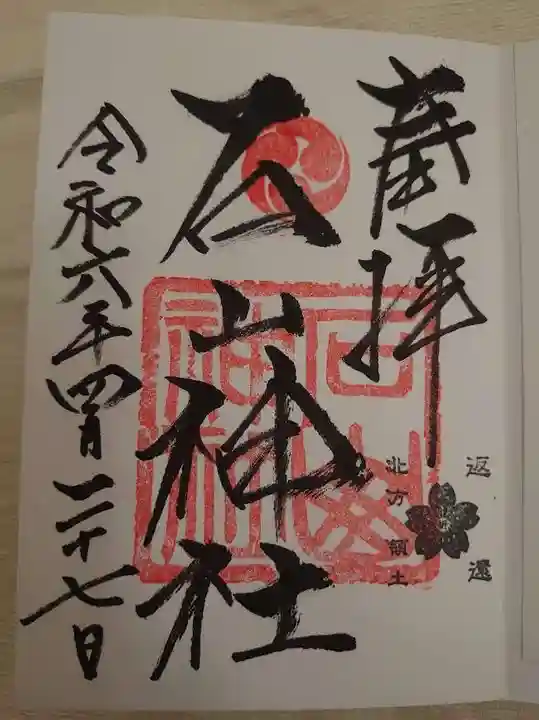 奉拝
返還
北方領土
石山神社
令和六年四月二十七日